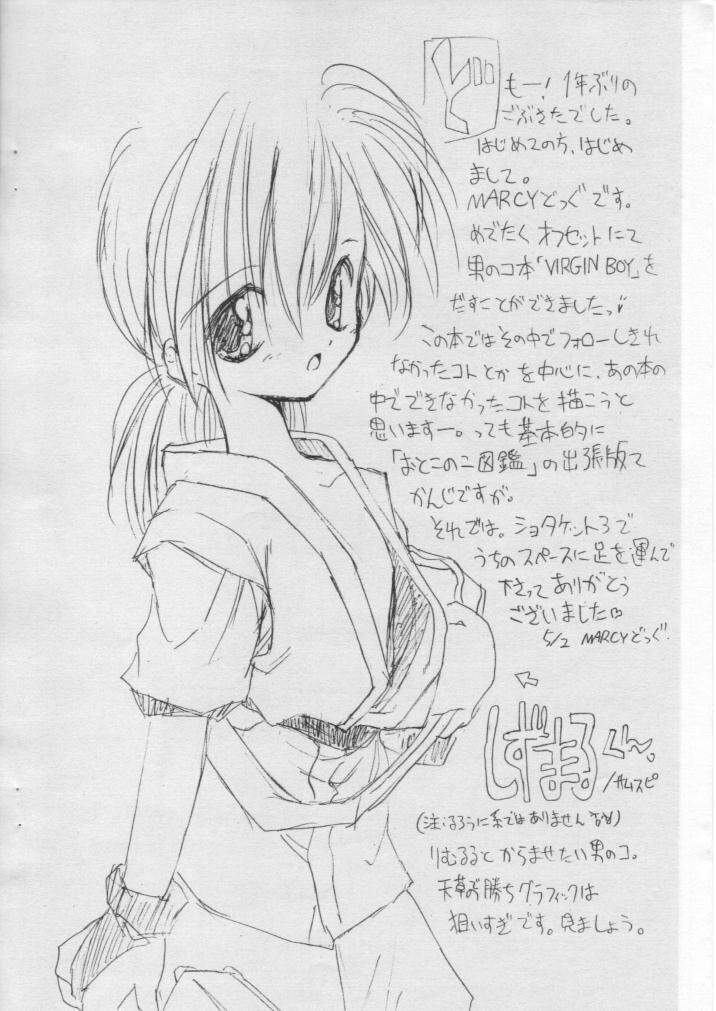 どもー！1年ぶりの
ごぶさたでした。
はじめてのち、はじめ
まして。
MARCYどっぐです。
めでたくオフセットにて
男のコ本「VIRGIN BOY」を
だすことができましたっ♥
この本ではその中でフォローしきれ
なかったコトとかを中心に、あの本の
中でできなかったコトを描こうと
思いますー。っても基本的に
「おとこのこ図鑑」の出張版て
かんじですが。
それでは。ショタケット3で
うちのスペースに足を運んで
下さってありがとう
ございました♡
5/2 MARCYどっぐ.
↖
しずまるくん。
/サムスピ
(注:るろうに系ではありません
りむるるとからませたい男のコ。
天草の勝ちグラフィックは
狙いすぎです。見ましょう。